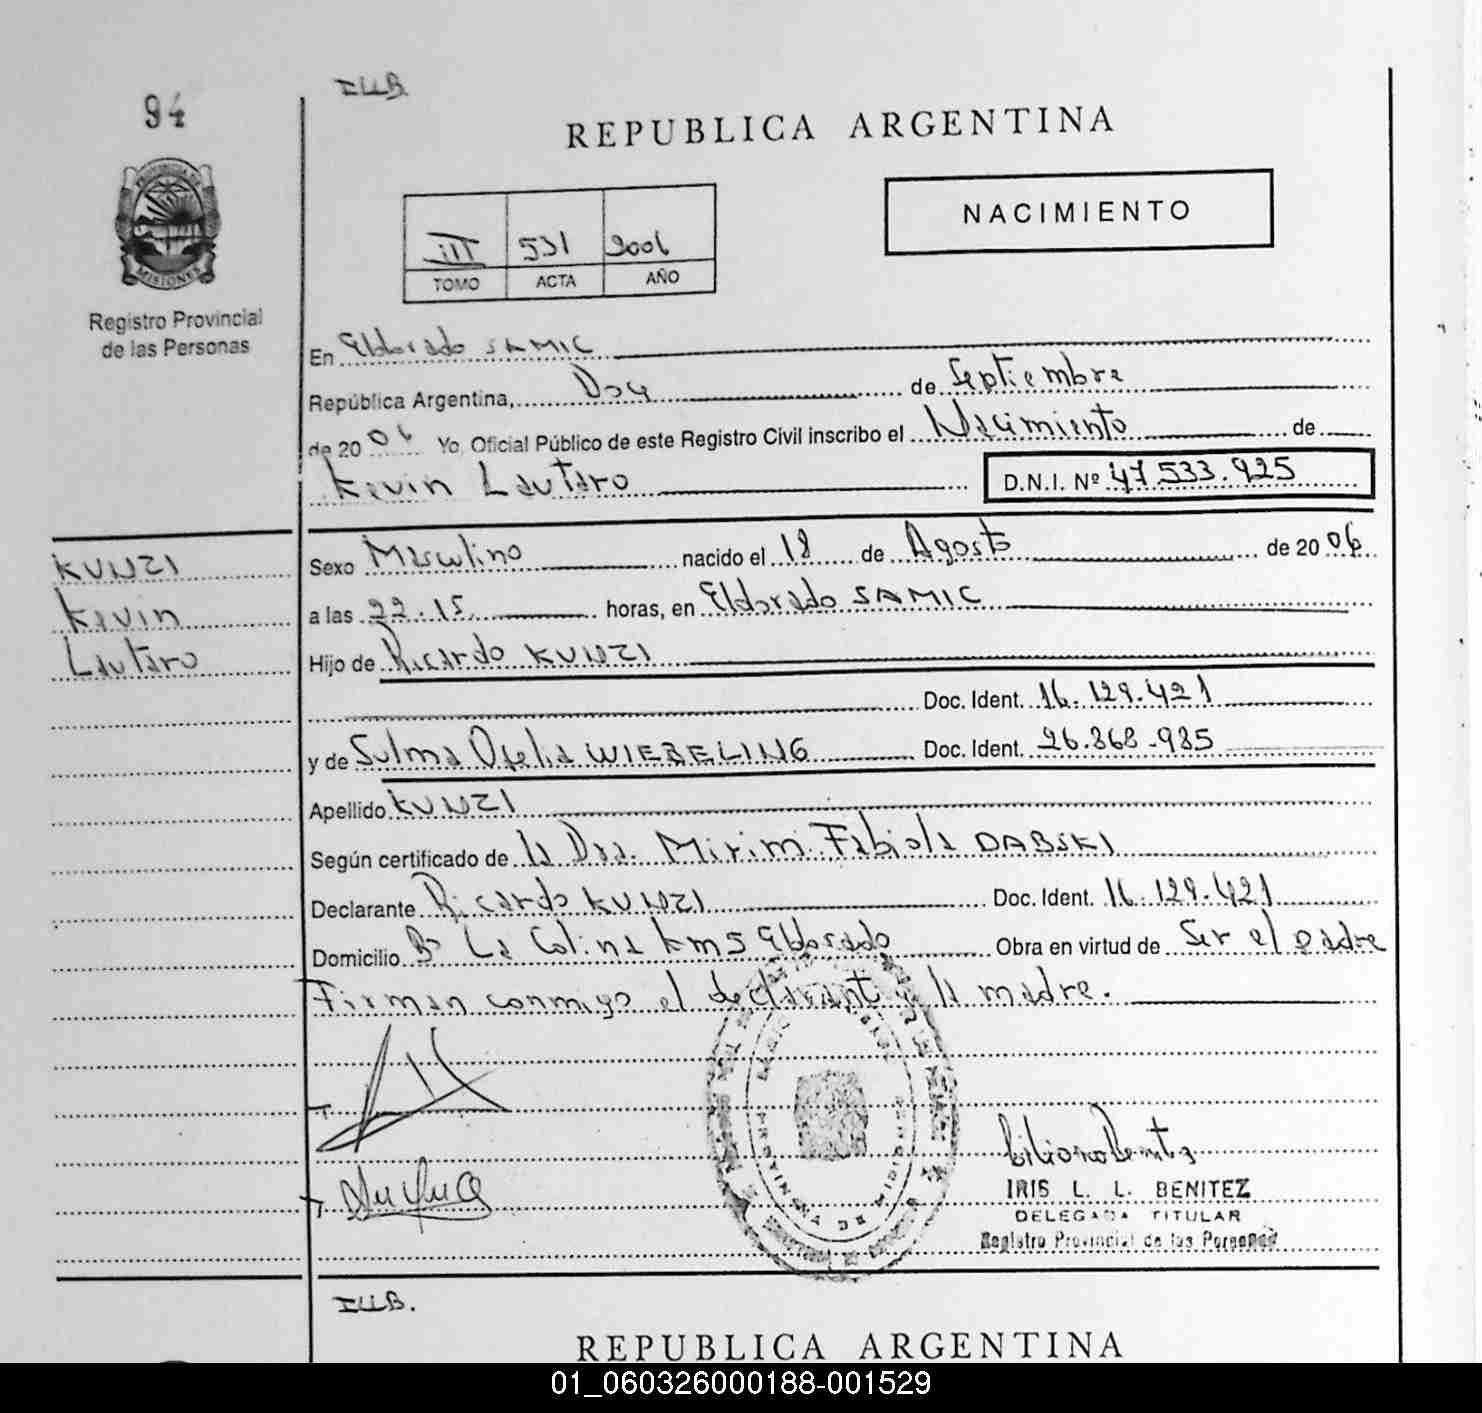 94
ILLB.
REPUBLICA ARGENTINA
PROVINCIA DE
MISIONES
Registro Provincial
de las Personas
III 531 2006
TOMO ACTA AÑO
NACIMIENTO
En Eldorado SAMIC
República Argentina, Dos de Septiembre
de 20 06 Yo, Oficial Público de este Registro Civil inscribo el Nacimiento de
Kevin Lautaro D.N.I. Nº 47.533.925
KUNZI
Kevin
Lautaro
Sexo Masculino nacido el 18 de Agosto de 20 06
a las 22.15. horas, en Eldorado SAMIC
Hijo de Ricardo KUNZI
Doc. Ident. 16.129.421
y de Sulma Ofelia WIEBELING Doc. Ident. 26.868.985
Apellido KUNZI
Según certificado de la Dra. Mirim Fabiola DABSKI
Declarante Ricardo KUNZI Doc. Ident. 16.129.421
Domicilio Bº La Colina km5 Eldorado Obra en virtud de Ser el padre
Firman conmigo el declarante y la madre.
PROVINCIA DE MISIONES
IRIS L. L. BENITEZ
DELEGADA TITULAR
Registro Provincial de las Personas
ILLB.
REPUBLICA ARGENTINA
01_060326000188-001529